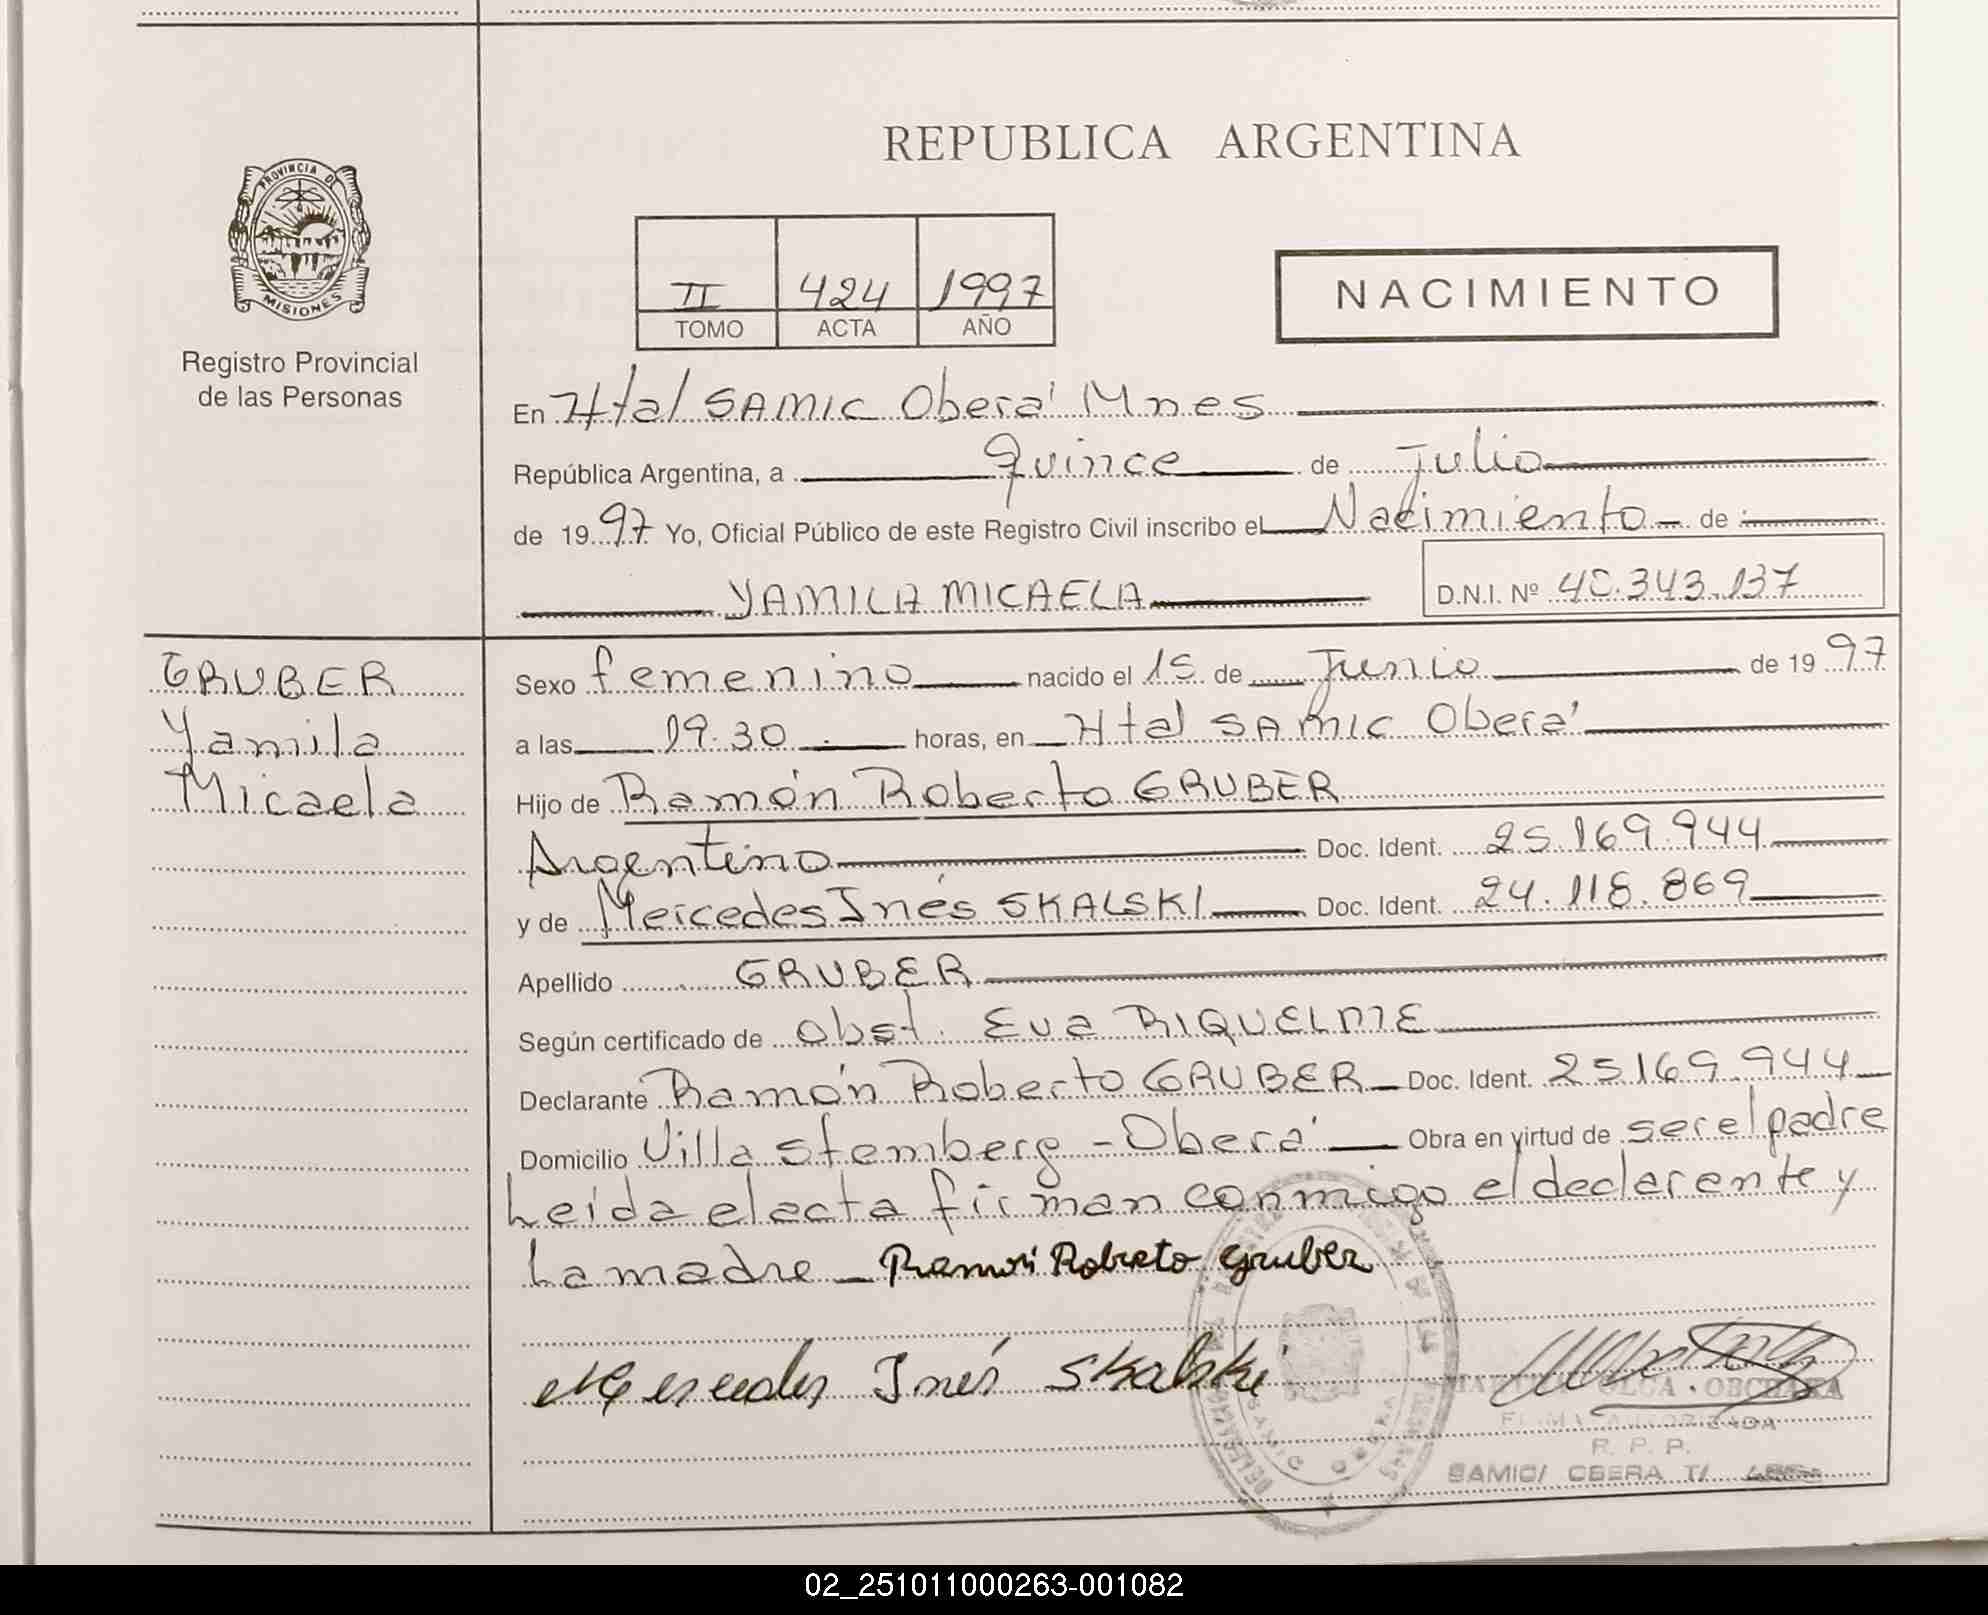 REPUBLICA ARGENTINA
PROVINCIA DE
MISIONES
Registro Provincial
de las Personas
II 424 1997
TOMO ACTA AÑO
NACIMIENTO
En Htal SAMIC Oberá Mnes
República Argentina, a Quince de Julio
de 1997 Yo, Oficial Público de este Registro Civil inscribo el Nacimiento de
YAMILA MICAELA D.N.I. Nº 40.343.137
GRUBER
Yamila
Micaela
Sexo femenino nacido el 15 de Junio de 1997
a las 19.30 horas, en Htal SAMIC Oberá
Hijo de Ramón Roberto GRUBER
Argentino Doc. Ident. 25.169.944
y de Mercedes Inés SKALSKI Doc. Ident. 24.118.869
Apellido GRUBER
Según certificado de Obst. Eva RIQUELME
Declarante Ramón Roberto GRUBER Doc. Ident. 25169.944
Domicilio Villa Stemberg - Oberá Obra en virtud de ser el padre
Leída el acta firman conmigo el declarente y
La madre Ramón Roberto Gruber
Mercedes Inés Skalski
OLGA OBCHARA
FIRMA AUTORIZADA
R. P. P.
SAMIC/ OBERA T/
02_251011000263-001082